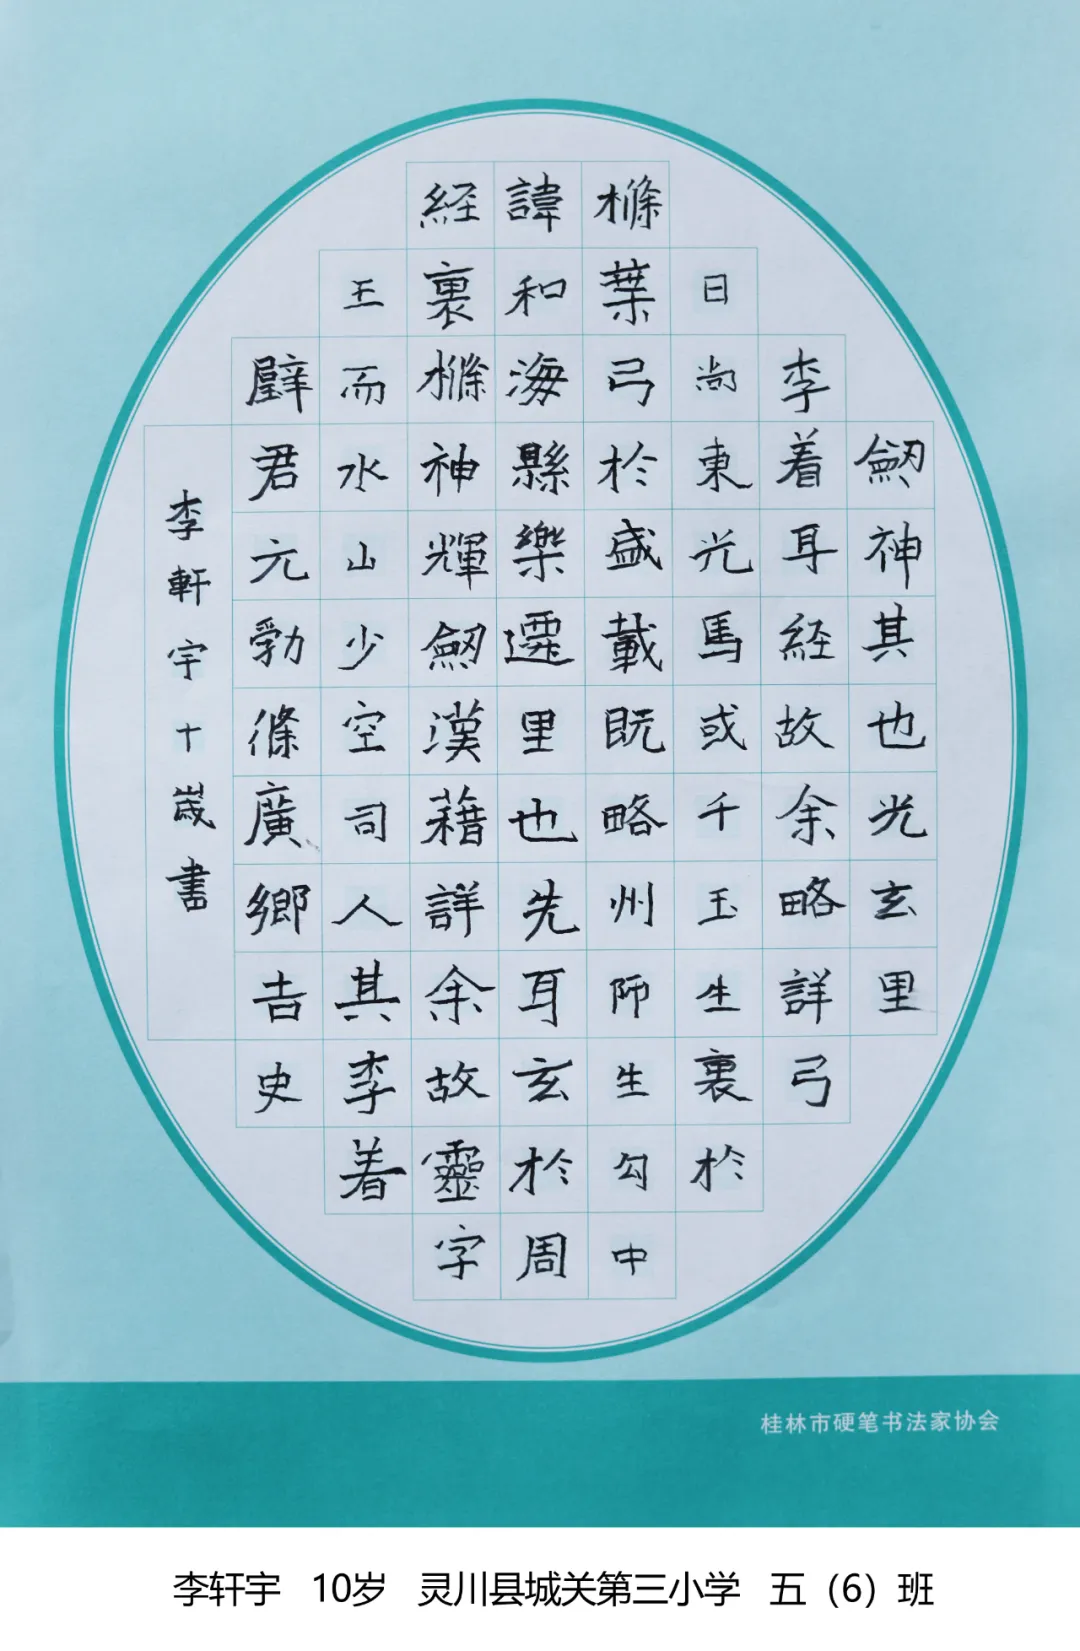 劔神其也光玄里
李着耳経故余略詳弓
日尚東光馬或千玉生裏於
樤葉弓於盛載既略州师生勾中
諱和海縣樂遷里也先耳玄於周
経裏樤神輝劔漢藉詳余故靈字
王而水山少空司人其李着
璧君元勃條廣鄉吉史
李軒宇十歳書
桂林市硬笔书法家协会
李轩宇 10岁 灵川县城关第三小学 五（6）班